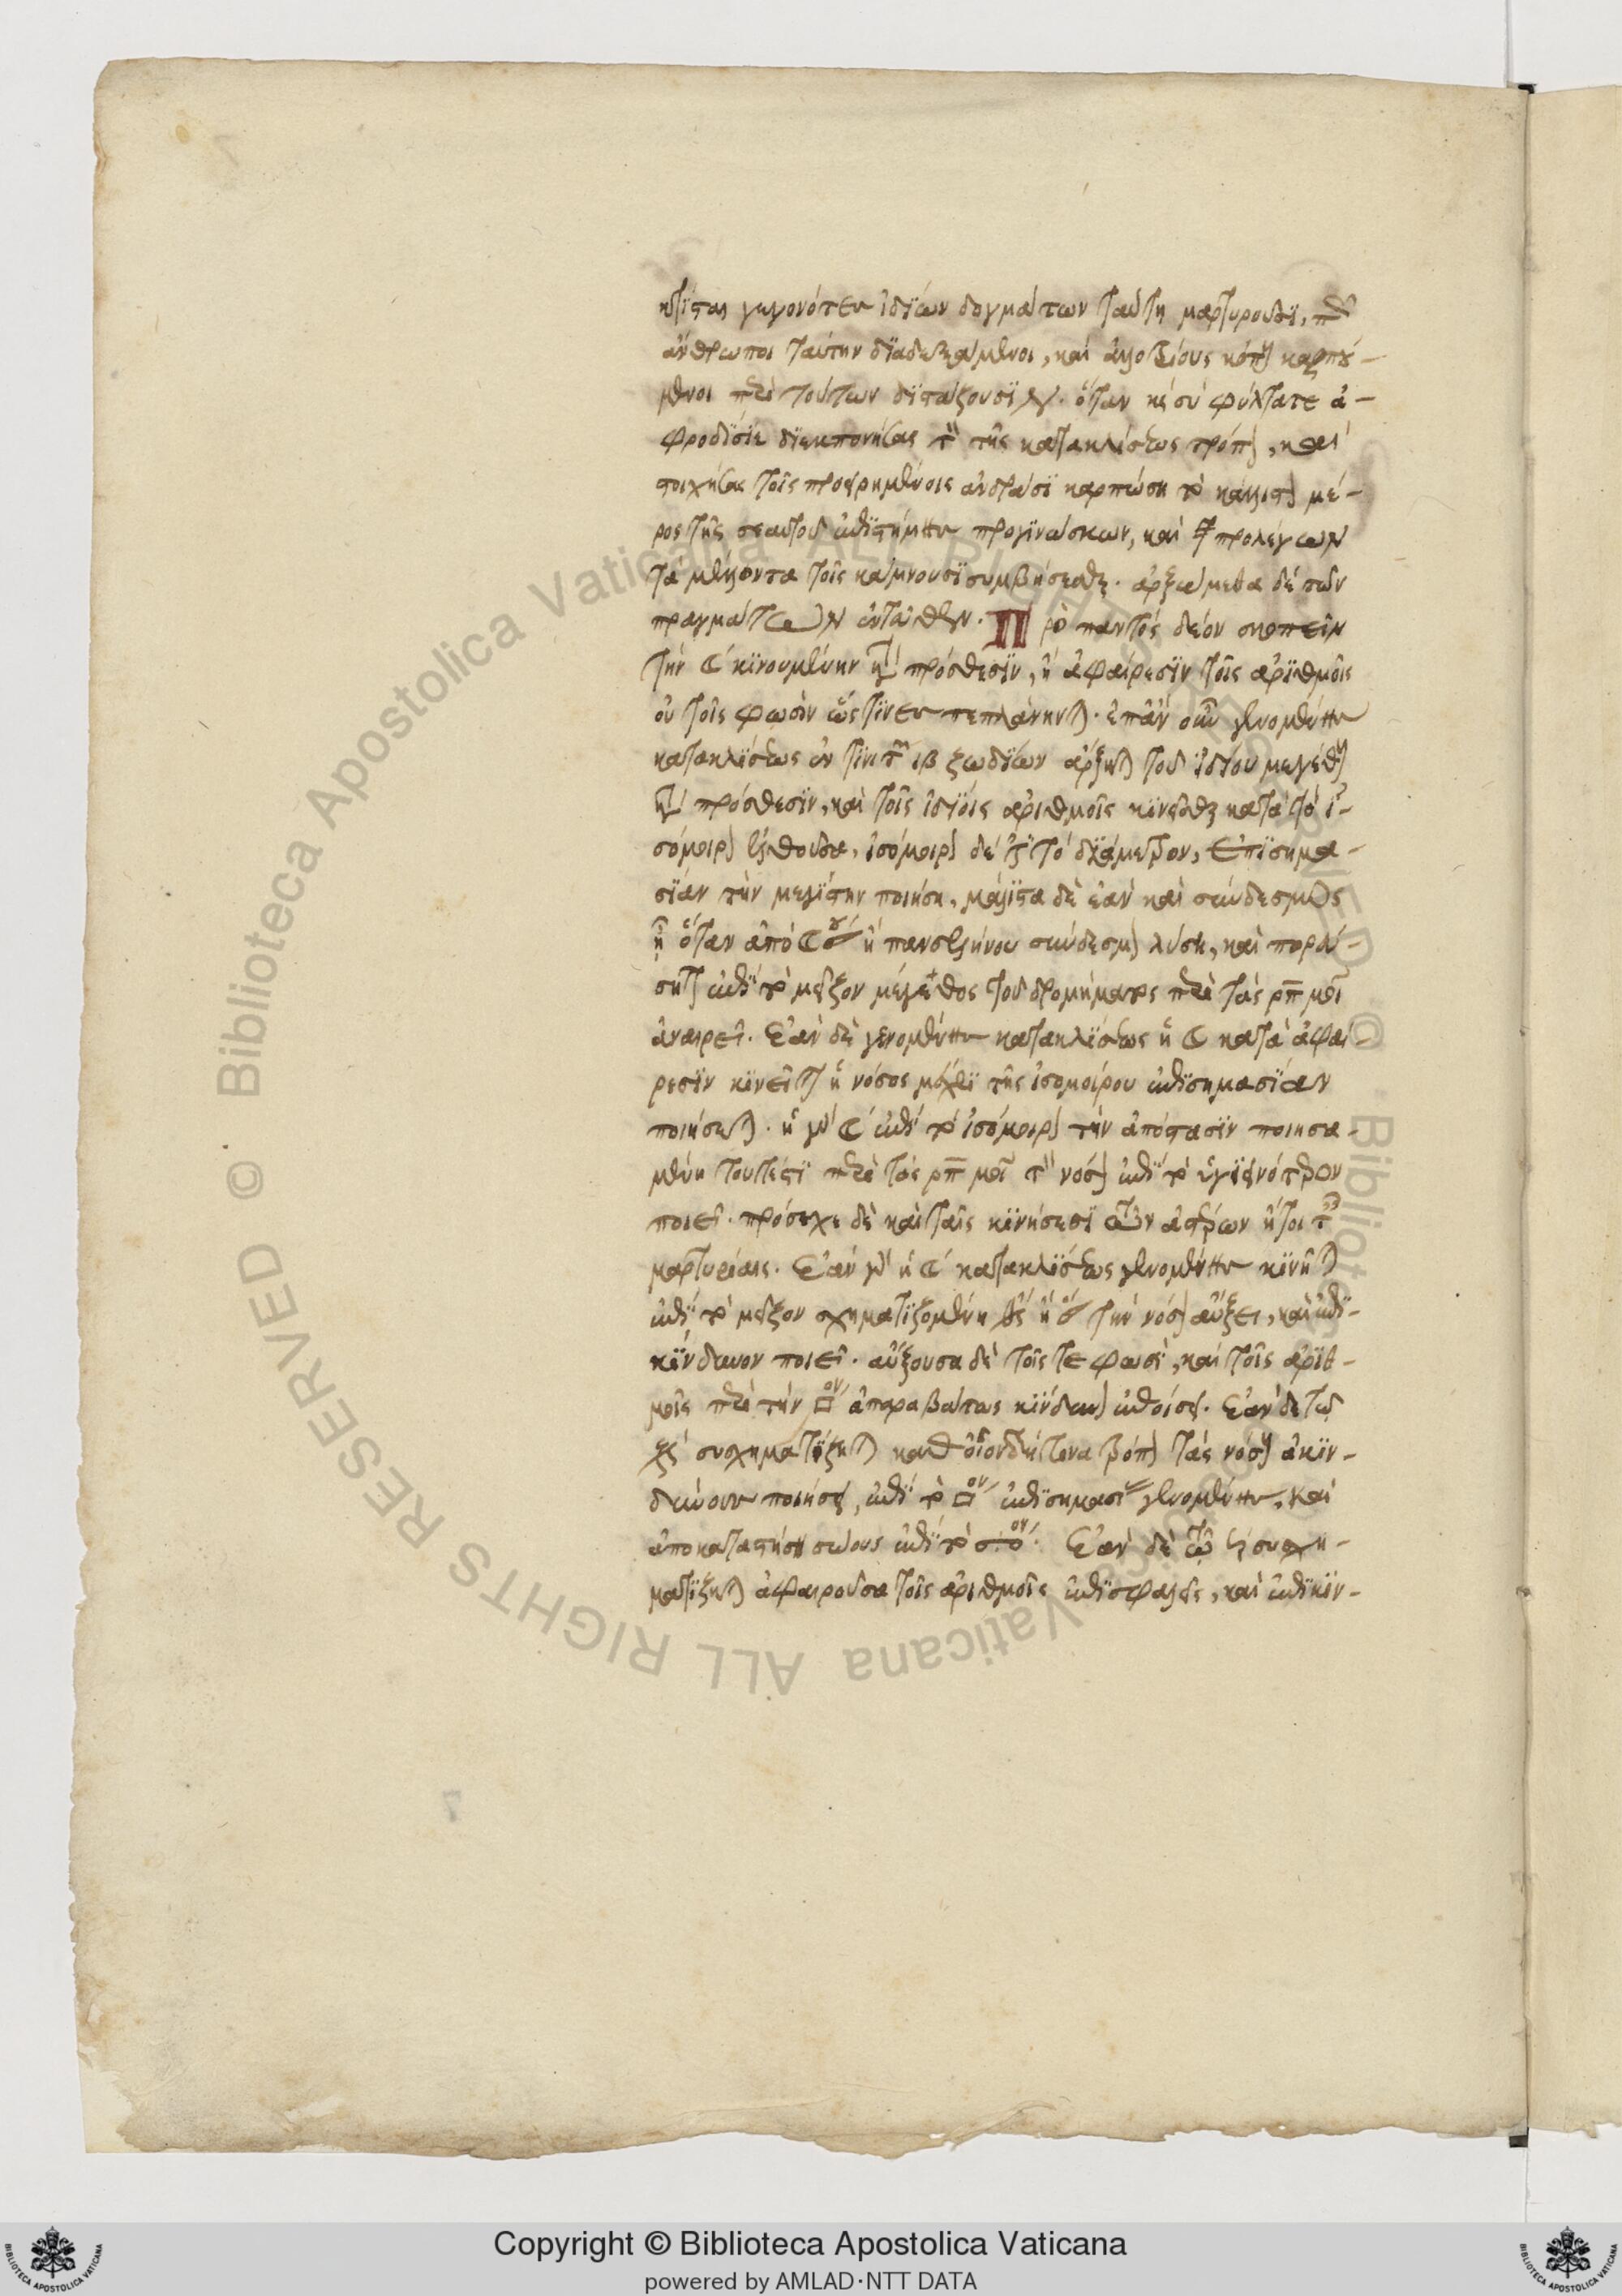 κτίσται γεγονότες ἰδίων δογμάτων ταύτῃ μαρτυροῦσι,
ἄνθρωποι ταύτην διαδεξάμενοι, καὶ ἀλλοτρίους κόπους καρπού-
μενοι περὶ τούτων διστάζουσι λέγειν. ὅταν καὶ σὺ φίλτατε ἀ-
φροδίσιε διεκπονήσας τὸν τῆς κατακλίσεως τρόπον, καὶ
στοιχήσας τοῖς προειρημένοις ἀνδράσι καρπώσῃ τὸ κάλλιστον μέ-
ρος τῆς σεαυτοῦ ἐπιστήμης προγινώσκων, καὶ προλέγων
τὰ μέλλοντα τοῖς κάμνουσι συμβήσεσθαι. ἀρξώμεθα δὲ τῶν
πραγμάτων ἐντεῦθεν. Πρὸ παντὸς δέον σκοπεῖν
τὴν ☾ κινουμένην κατὰ πρόσθεσιν, ἢ ἀφαίρεσιν τοῖς ἀριθμοῖς
οὐ τοῖς φωσὶν ὥς τινες πεπλάνηνται. ἐπὰν οὖν γενομένης
κατακλίσεως ἔν τινι τῶν ιβ ζωδίων ἄρξηται τοῦ ἰδίου μεγέθους
κατὰ πρόσθεσιν, καὶ τοῖς ἰδίοις ἀριθμοῖς κινεῖσθαι κατὰ τὸ ἰ-
σόμοιρον ἐλθοῦσα, ἰσόμοιρον δέ ἐστι τὸ διάμετρον, ἐπισημα-
σίαν τὴν μεγίστην ποιήσῃ, μάλιστα δὲ ἐὰν καὶ σύνδεσμος
ᾖ ὅταν ἀπὸ ☾ ἢ πανσελήνου σύνδεσμον λύσῃ, καὶ πορεύ-
σηται ἐπὶ τὸ μεῖζον μέγεθος τοῦ δρομήματος περὶ τὰς ρπ μοι
ἀναιρεῖ. Ἐὰν δὲ γενομένης κατακλίσεως ἡ ☾ κατὰ ἀφαί-
ρεσιν κινεῖται ἡ νόσος μέχρι τῆς ἰσομοίρου ἐπισημασίαν
ποιήσεται. ἡ γὰρ ☾ ἐπὶ τὸ ἰσόμοιρον τὴν ἀπόστασιν ποιησα-
μένη τουτέστι περὶ τὰς ρπ μοι τὴν νόσον ἐπὶ τὸ ὑγιεινότερον
ποιεῖ. πρόσεχε δὲ καὶ ταῖς κινήσεσι τῶν ἀστέρων ἤτοι ταῖς
μαρτυρίαις. Ἐὰν γὰρ ἡ ☾ κατακλίσεως γενομένης κινῆται
ἐπὶ τὸ μεῖζον σχηματιζομένη ♄ ἢ ♂ τὴν νόσον αὔξει, καὶ ἐπι-
κίνδυνον ποιεῖ. αὔξουσα δὲ τοῖς τε φωσὶ, καὶ τοῖς ἀριθ-
μοῖς περὶ τὴν □ον ἀπαραβάτως κίνδυνον ἐποίσει. Ἐὰν δὲ τῷ
♃ συσχηματίζηται καθ' οἱονδήποτε τρόπον τὰς νόσους ἀκιν-
δύνους ποιήσει, ἐπὶ τὸ □ον ἐπισημασίας γενομένης, καὶ
ἀποκαταστήσῃ σώους ἐπὶ τὸ ον. Ἐὰν δὲ τῷ ♄ συσχη-
ματίζηται ἀφαιροῦσα τοῖς ἀριθμοῖς ἐπισφαλεῖς, καὶ ἐπικιν-
Copyright © Biblioteca Apostolica Vaticana
powered by AMLAD·NTT DATA